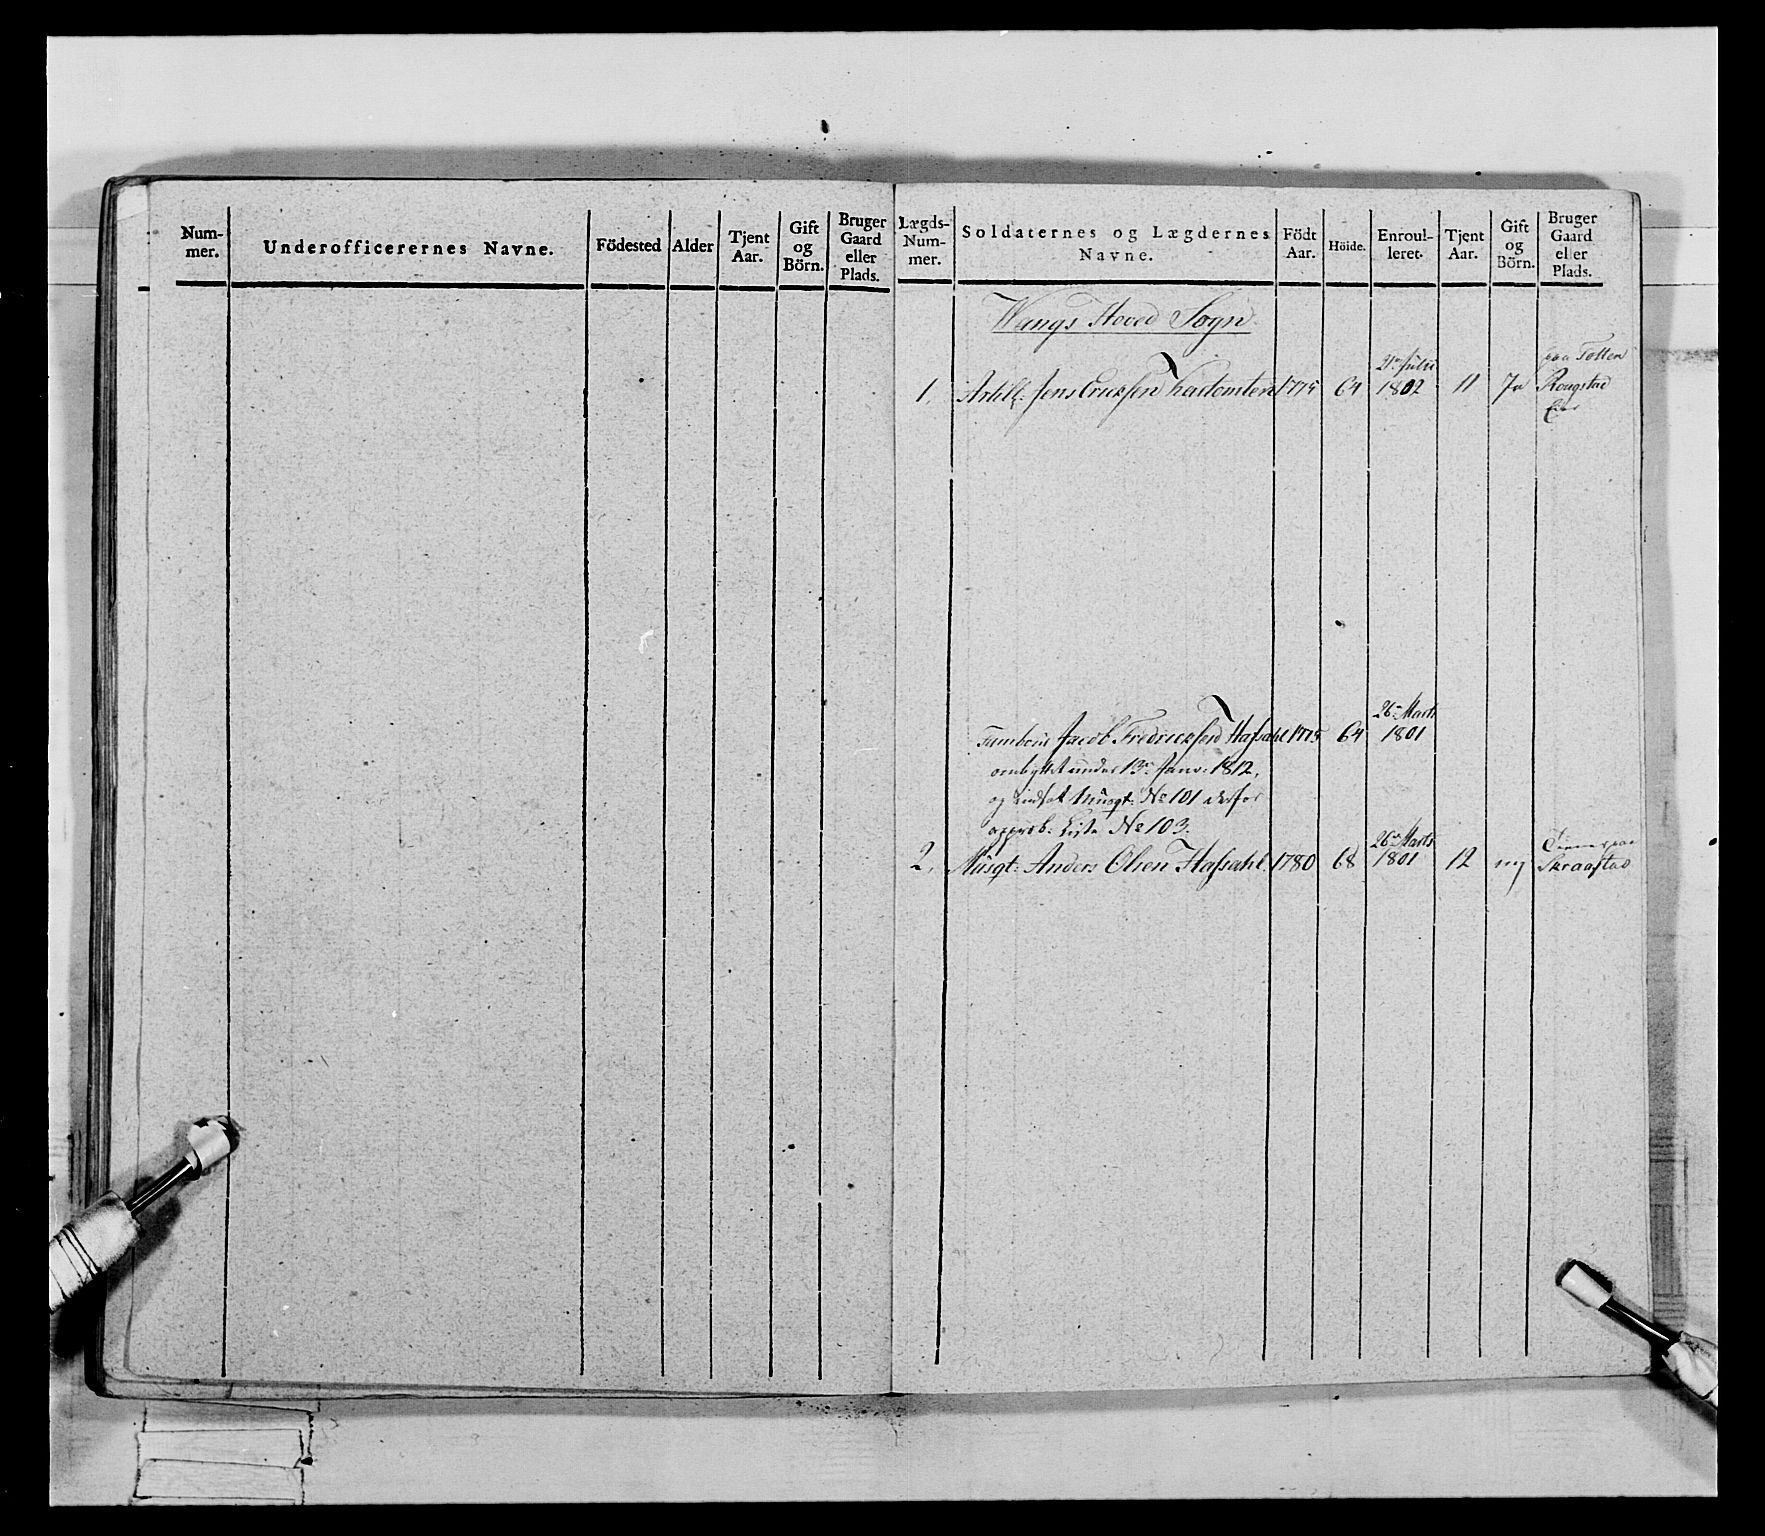 Num-
mer.
Underofficerernes Navne.
Födested
Alder
Tjent
Aar.
Gift
og
Börn.
Bruger
Gaard
eller
Plads.
Lægds-
Num-
mer.
Soldaternes og Lægdernes
Navne.
Födt
Aar.
Höide.
Enroul-
leret.
Tjent
Aar.
Gift
og
Börn.
Bruger
Gaard
eller
Plads.
Wangs Hoved Sogn
1. Artill: Jens Ericksen 1775 64 Julii 1802 11 Ja paa Totten
Rougstad
Tambour Jacob Fredricksen Hafsahl 1775 64 26de Marts 1801
ombyttet under 13de Janv: 1812,
og indsat Musqt: No 101 derfor
approb: Liste No 103.
2. Musqt: Anders Olsen Hafsahl. 1780 68 26de Marts 1801 12 nej
Skraastad